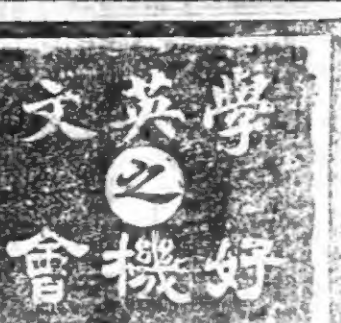 學英文
之
好機會